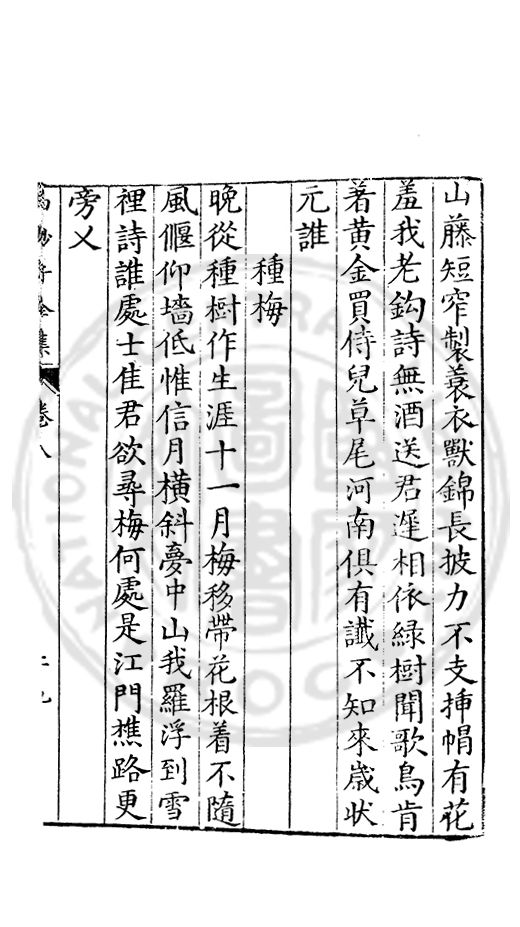 山藤短窄製蓑衣獸錦長披力不支揷帽有花
羞我老鈎詩無酒送君遲相依綠樹聞歌鳥肯
着黄金買侍兒草尾河南俱有讖不知來歳状
元誰
種梅
晚從種樹作生涯十一月梅移帶花根着不隨
風偃仰墻低惟信月橫斜夢中山我羅浮到雪
裡詩誰處士佳君欲尋梅何處是江門樵路更
旁乂
集
卷八
NATIONAL